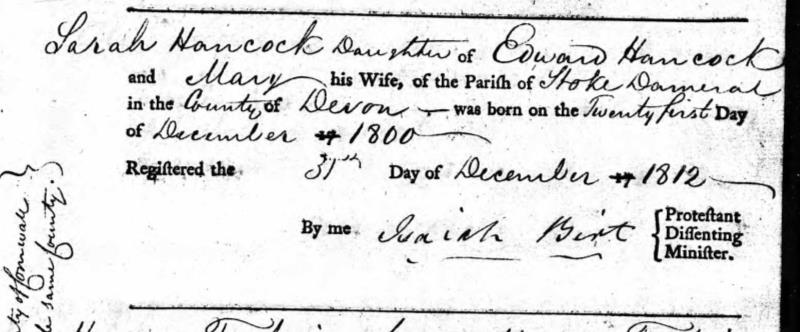 Sarah Hancock Daughter of Edward Hancock
and Mary his Wife, of the Parish of Stoke Dameral
in the County of Devon — was born on the Twenty first Day
of December 17 1800
Registered the 31th Day of December 17 1812
By me Isaiah Birt { Protestant
Dissenting
Minister.
ty of Cornwall }
he same County.